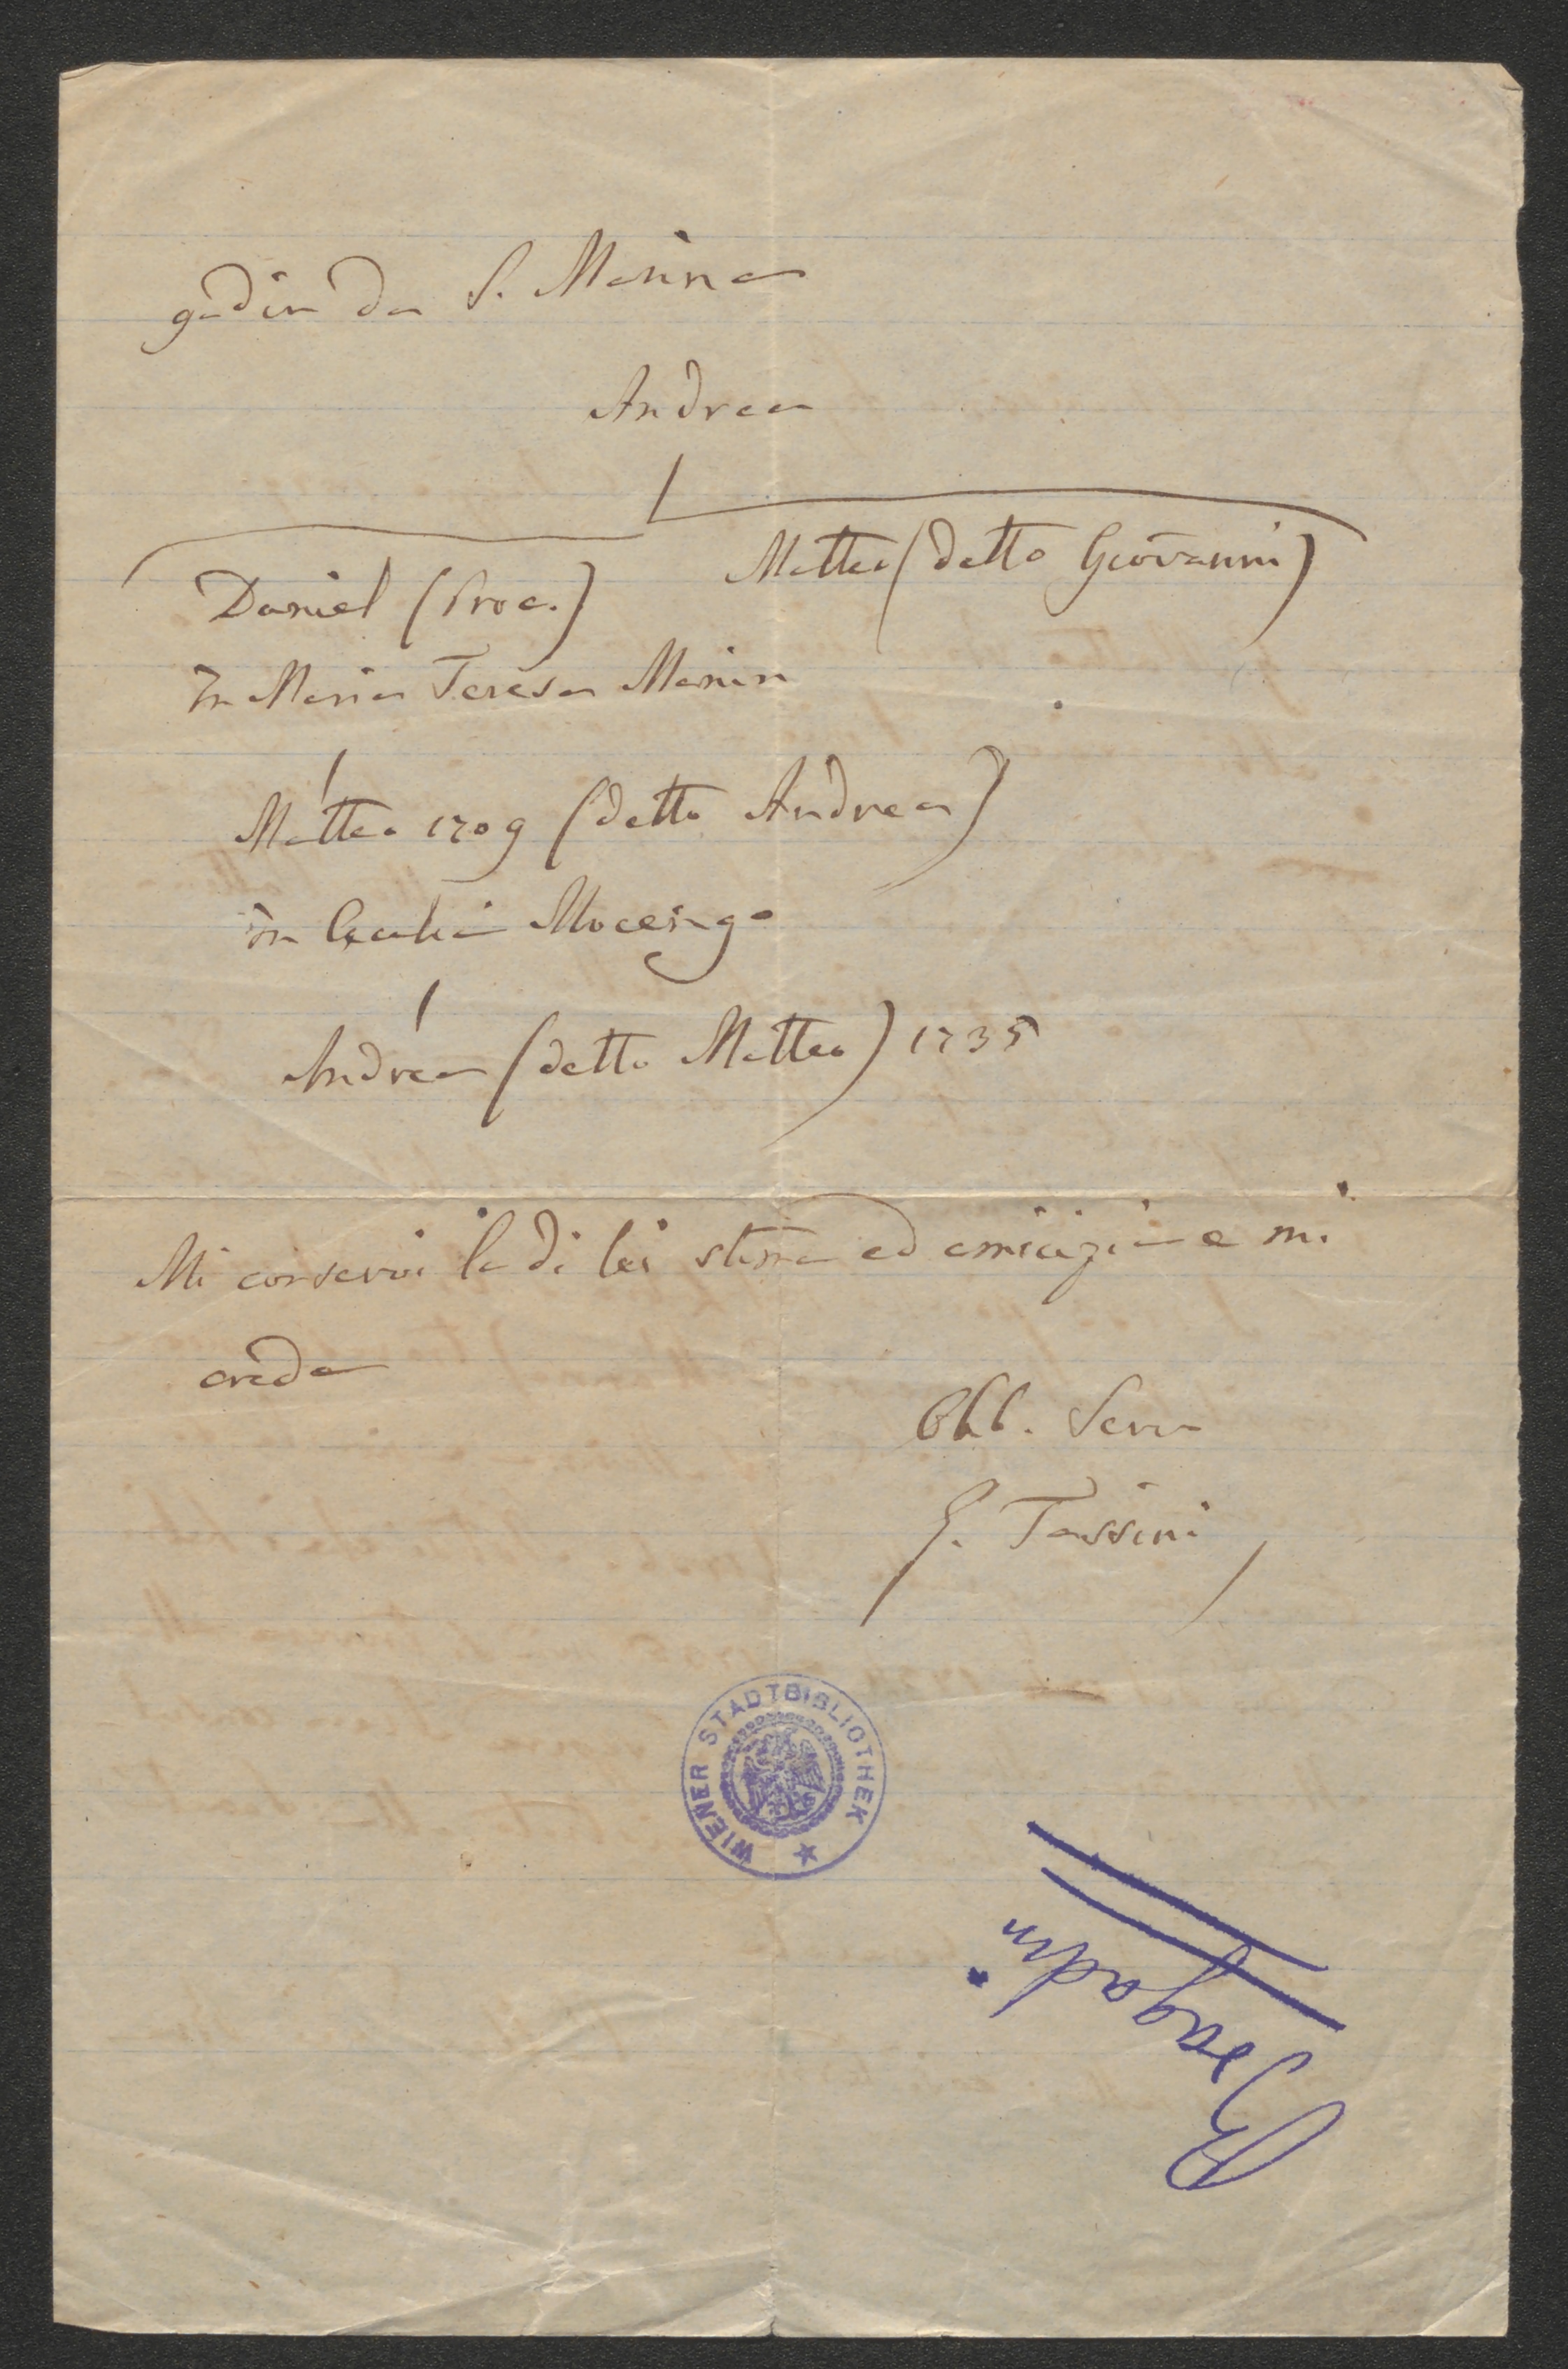 gadin da S. Marina
Andrea
Daniel (Proc.) Matteo (detto Giovanni)
In Maria Teresa Manin
Matteo 1709 (detto Andrea)
In Cecilia Mocenigo
Andrea (detto Matteo) 1735
Mi conservi la di lei stima ed amicizia e mi
creda
Obb. Servo
G. Tassini
WIENER STADTBIBLIOTHEK
Bragadin